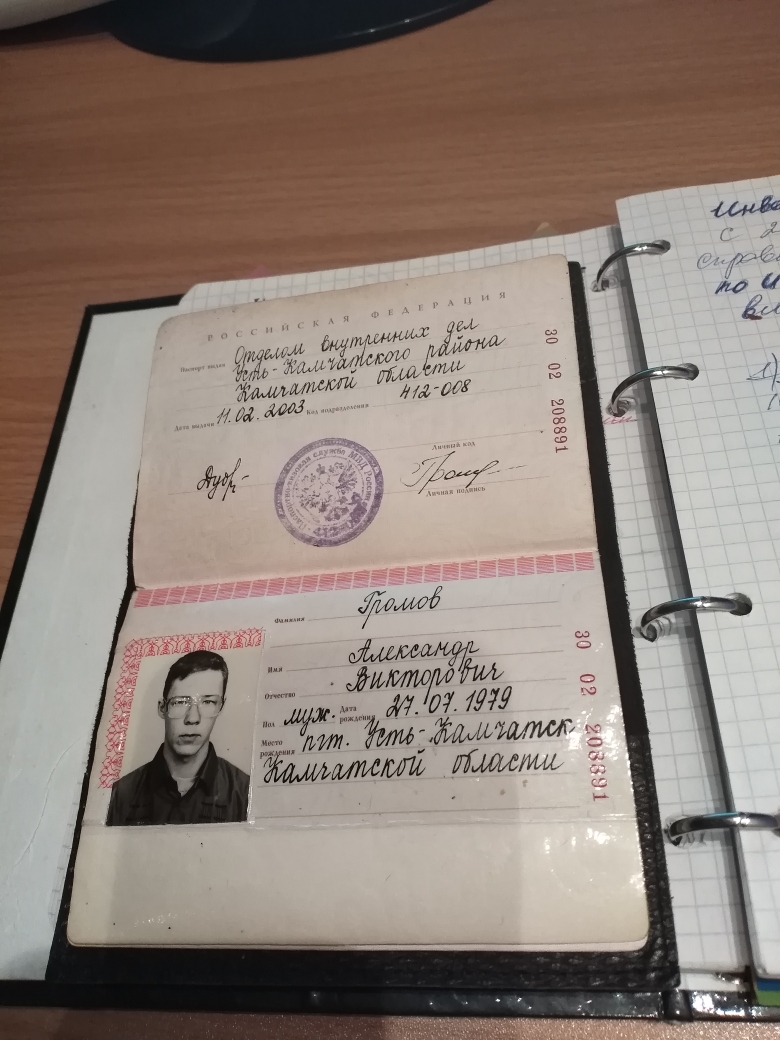 РОССИЙСКАЯ ФЕДЕРАЦИЯ
Паспорт выдан Отделом внутренних дел
Усть-Камчатского района
Камчатской области
Дата выдачи 11.02.2003 Код подразделения 412-008
Личный код
Личная подпись
30 02 208891
Фамилия Громов
Имя Александр
Отчество Викторович
Пол муж. Дата рождения 27.07.1979
Место рождения пгт. Усть-Камчатск
Камчатской области
30 02 208891
с 2
по